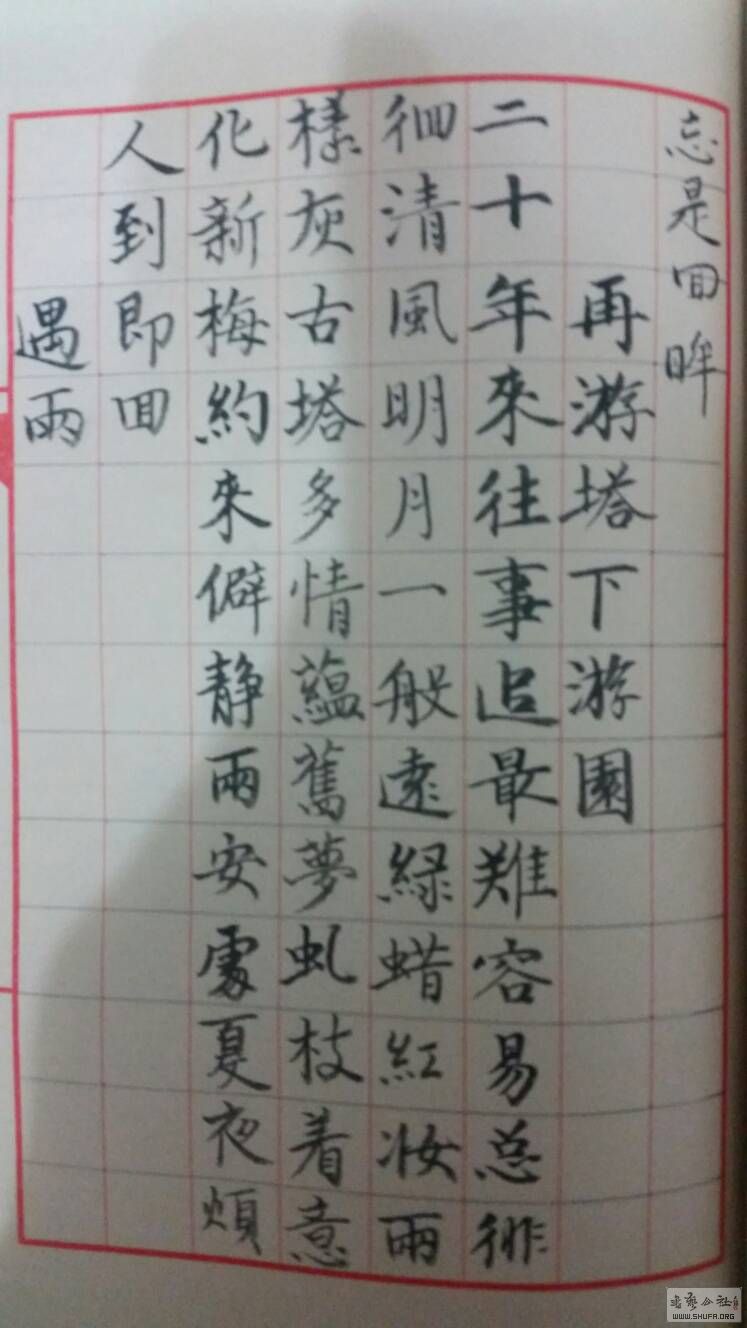 忘是回眸
再游塔下游園
二十年來往事追最難容易总徘
徊清風明月一般遠綠蜡紅妆兩
樣灰古塔多情蘊舊夢虬枝着意
化新梅約來僻静兩安處夏夜煩
人到即回
遇雨
WWW.SHUFA.ORG